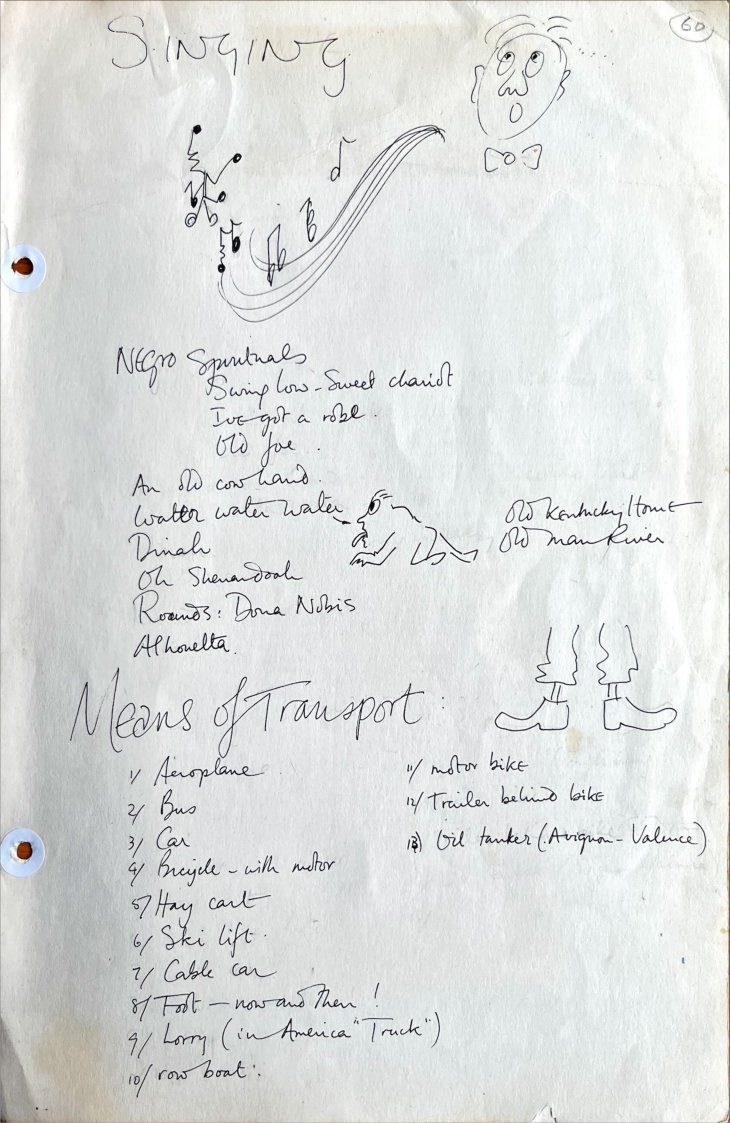 60
SINGING
Negro Spirituals
Swing low - Sweet chariot
I've got a robe.
Old Joe.
An old cowhand.
Water water water
Dinah
Oh Shenandoah
Rounds: Dona Nobis
Alhouetta.
Old Kentucky Home
Old man River
Means of Transport:
1/ Aeroplane
2/ Bus
3/ Car
4/ Bicycle - with motor
5/ Hay cart
6/ Ski lift.
7/ Cable car
8/ Foot - now and then!
9/ Lorry (in America "Truck")
10/ row boat:
11/ motor bike
12/ Trailer behind bike
13) Oil tanker (Avignon - Valence)